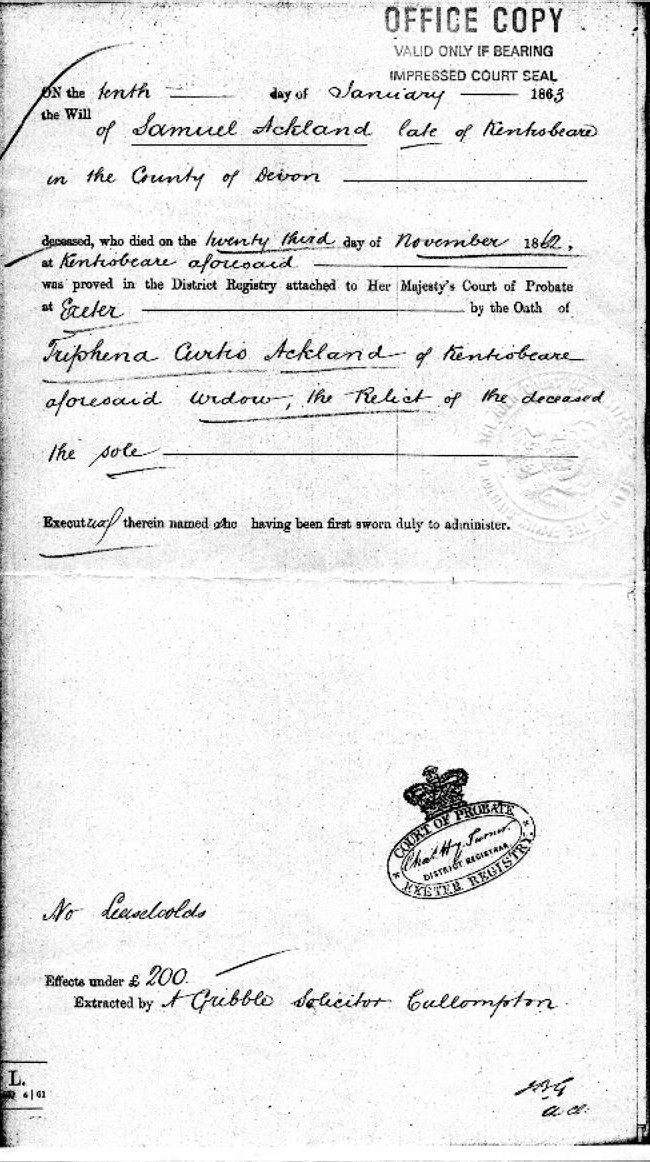 OFFICE COPY
VALID ONLY IF BEARING
IMPRESSED COURT SEAL
ON the tenth day of January 1863
the Will
of Samuel Ackland late of Kentisbeare
in the County of Devon
deceased, who died on the twenty third day of November 1862,
at Kentisbeare aforesaid
was proved in the District Registry attached to Her Majesty's Court of Probate
at Exeter by the Oath of
Triphena Curtis Ackland of Kentisbeare
aforesaid Widow, the Relict of the deceased
the sole
Executrix therein named she having been first sworn duly to administer.
COURT OF PROBATE
Chas. Hy. Turner
DISTRICT REGISTRAR
EXETER REGISTRY
No Leaseholds
Effects under £ 200.
Extracted by A Gribble Solicitor Cullompton
L.
6|61